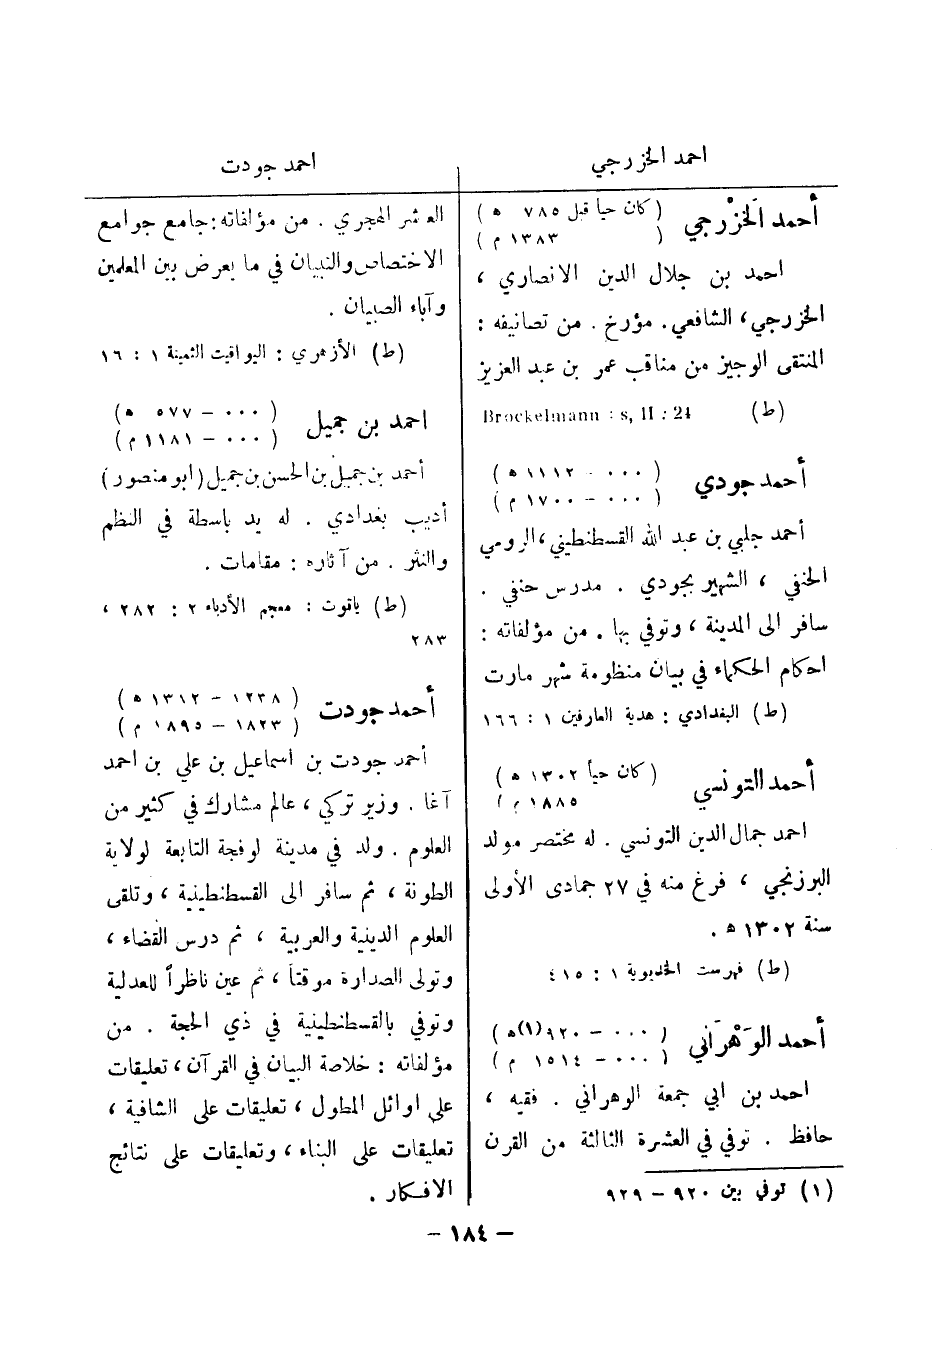 احمد الخزرجي
احمد جودت
أحمد الخَزْرجي
( كان حياً قبل ٧٨٥ ه )
( ١٣٨٣ م )
احمد بن جلال الدين الانصاري ،
الخزرجي، الشافعي. مؤرخ . من تصانيفه :
المنتقى الوجيز من مناقب عمر بن عبد العزيز
(ط) Brockelmann : s, II : 24
أحمد جودي
( ٠٠٠ - ١١١٢ ه )
( ٠٠٠ - ١٧٠٠ م )
أحمد جلبي بن عبد الله القسطنطيني، الرومي
الحنفي ، الشهير بجودي . مدرس حنفي .
سافر الى المدينة ، وتوفي بها . من مؤلفاته :
احكام الحكماء في بيان منظومة شهر مارت
(ط) البغدادي : هدية العارفين ١ : ١٦٦
أحمد التونسي
( كان حياً ١٣٠٢ ه )
١٨٨٥ م )
احمد جمال الدين التونسي . له مختصر مولد
البرزنجي ، فرغ منه في ٢٧ جمادى الأولى
سنة ١٣٠٢ ه .
(ط) فهرست الخديوية ١ : ٤١٥
أحمد الوَهْرَاني
( ٠٠٠ - ٩٢٠(١)ه )
( ٠٠٠ - ١٥١٤ م )
احمد بن ابي جمعة الوهراني . فقيه ،
حافظ . توفي في العشرة الثالثة من القرن
(١) توفي بين ٩٢٠ - ٩٢٩
العاشر الهجري . من مؤلفاته: جامع جوامع
الاختصاص والتبيان في ما يعرض بين المعلمين
وآباء الصبيان .
(ط) الأزهري : اليواقيت الثمينة ١ : ١٦
احمد بن جميل
( ٠٠٠ - ٥٧٧ ه )
( ٠٠٠ - ١١٨١ م )
أحمد بن جميل بن الحسن بن جميل (ابو منصور)
أديب بغدادي . له يد باسطة في النظم
والنثر . من آثاره : مقامات .
(ط) ياقوت : معجم الأدباء ٢ : ٢٨٢ ،
٢٨٣
أحمد جودت
( ١٢٣٨ - ١٣١٢ ه )
( ١٨٢٣ - ١٨٩٥ م )
أحمد جودت بن اسماعيل بن علي بن احمد
آغا . وزير تركي ، عالم مشارك في كثير من
العلوم . ولد في مدينة لوفجة التابعة لولاية
الطونة ، ثم سافر الى القسطنطينية ، وتلقى
العلوم الدينية والعربية ، ثم درس القضاء ،
وتولى الصدارة موقتاً ، ثم عين ناظراً للعدلية
وتوفي بالقسطنطينية في ذي الحجة . من
مؤلفاته : خلاصة البيان في القرآن ، تعليقات
على اوائل المطول ، تعليقات على الشافية ،
تعليقات على البناء ، وتعليقات على نتائج
الافكار .
- ١٨٤ -